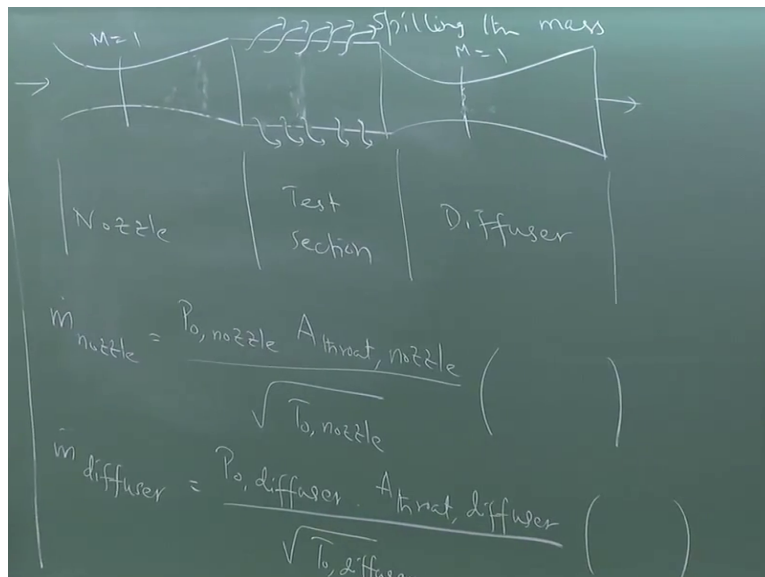 Spilling the mass
M=1
M=1
Nozzle
Test
section
Diffuser
ṁ nozzle = P0, nozzle A throat, nozzle / √T0, nozzle ( )
ṁ diffuser = P0, diffuser . A throat, diffuser / √T0, diffuser ( )